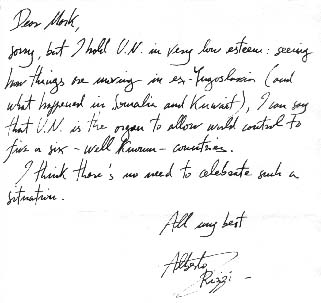 Dear Mark,
sorry, but I hold U.N. in very low esteem: seeing
how things are moving in ex-Yugoslavia (and
what happened in Somalia and Kuwait), I can say
that U.N. is the organ to allow world control to
five or six - well known - countries.
I think there's no need to celebrate such a
situation.
All my best
Alberto
Rizzi -